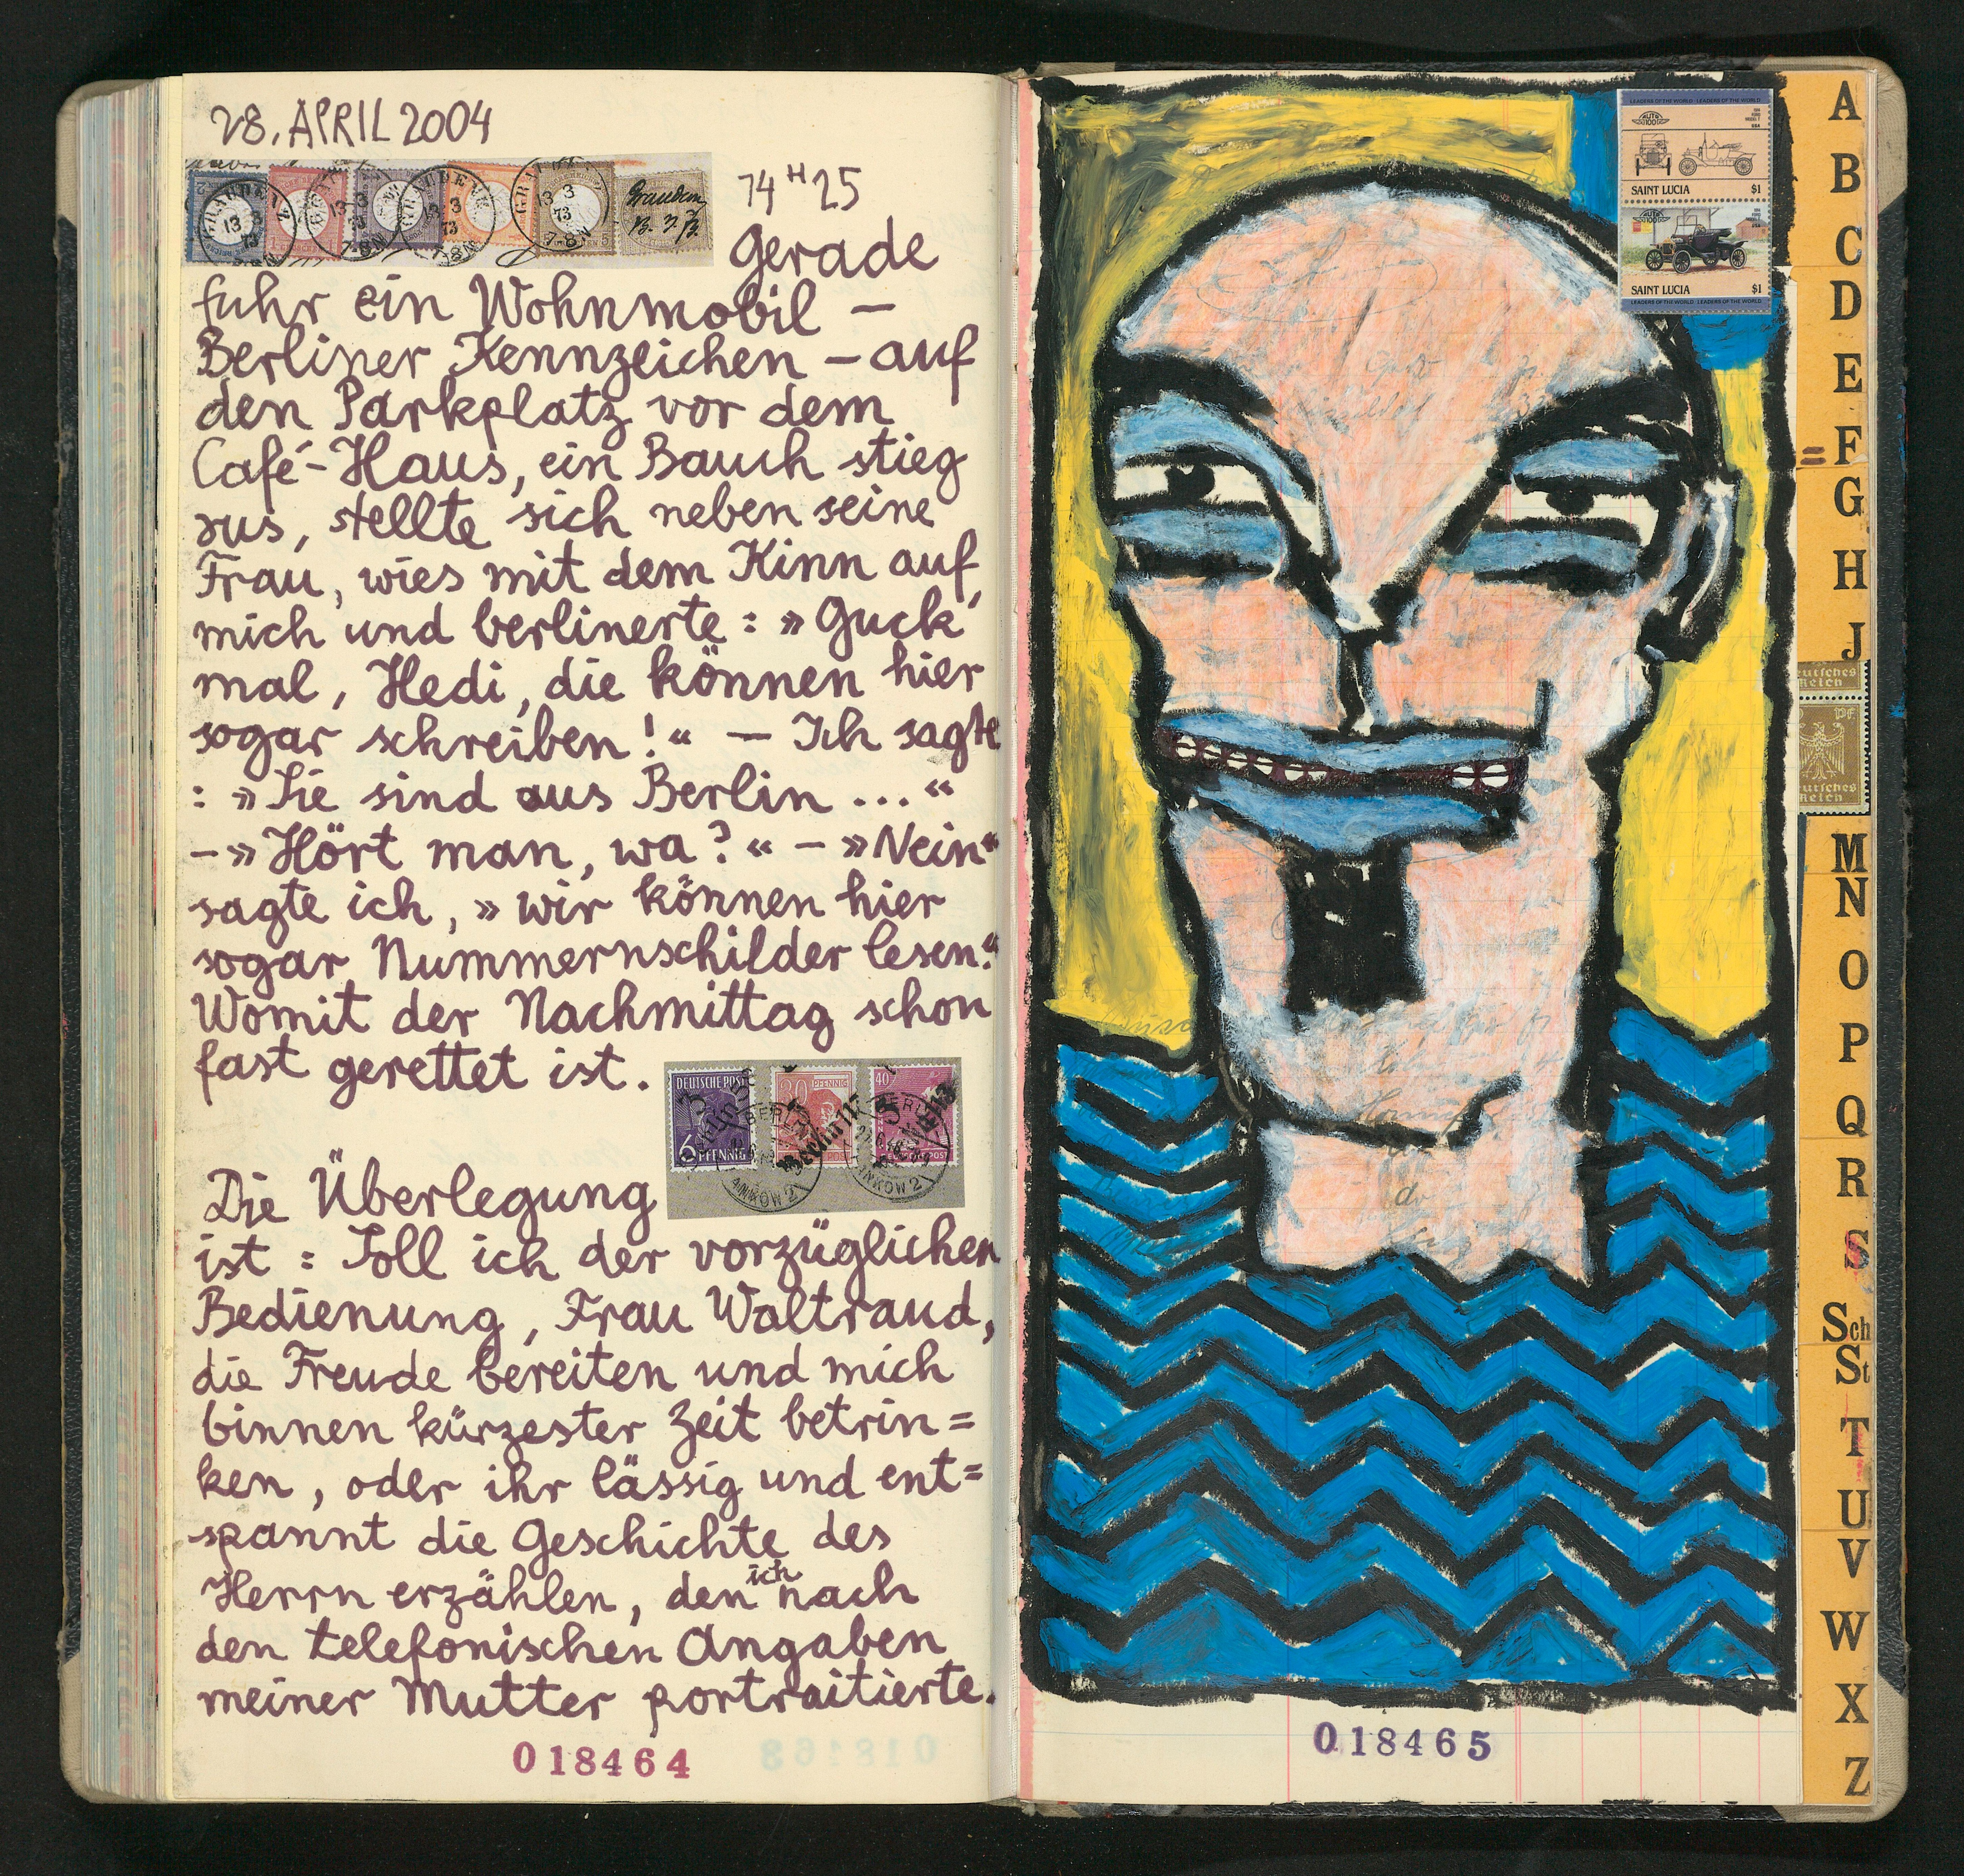 28. APRIL 2004
14 H 25
Gerade
fuhr ein Wohnmobil –
Berliner Kennzeichen – auf
den Parkplatz vor dem
Café-Haus, ein Bauch stieg
aus, stellte sich neben seine
Frau, wies mit dem Kinn auf
mich und berlinerte : »Guck'
mal, Hedi, die können hier
sogar schreiben!« – Ich sagte
: »Sie sind aus Berlin ...«
– »Hört man, wa?« – »Nein«
sagte ich, »wir können hier
sogar Nummernschilder lesen.«
Womit der Nachmittag schon
fast gerettet ist.
DEUTSCHE POST
6 PFENNIG
30 PFENNIG
40
Die Überlegung
ist : Soll ich der vorzüglichen
Bedienung, Frau Waltraud,
die Freude bereiten und mich
binnen kürzester Zeit betrin=
ken, oder ihr lässig und ent=
spannt die Geschichte des
Herrn erzählen, den ich nach
den telefonischen Angaben
meiner Mutter portraitierte.
018464
LEADERS OF THE WORLD · LEADERS OF THE WORLD
AUTO 100
SAINT LUCIA $1
AUTO 100
SAINT LUCIA $1
LEADERS OF THE WORLD · LEADERS OF THE WORLD
018465
A
B
C
D
E
= F
G
H
J
Deutsches
Reich
Pf
Deutsches
Reich
M
N
O
P
Q
R
S
Sch
St
T
U
V
W
X
Z